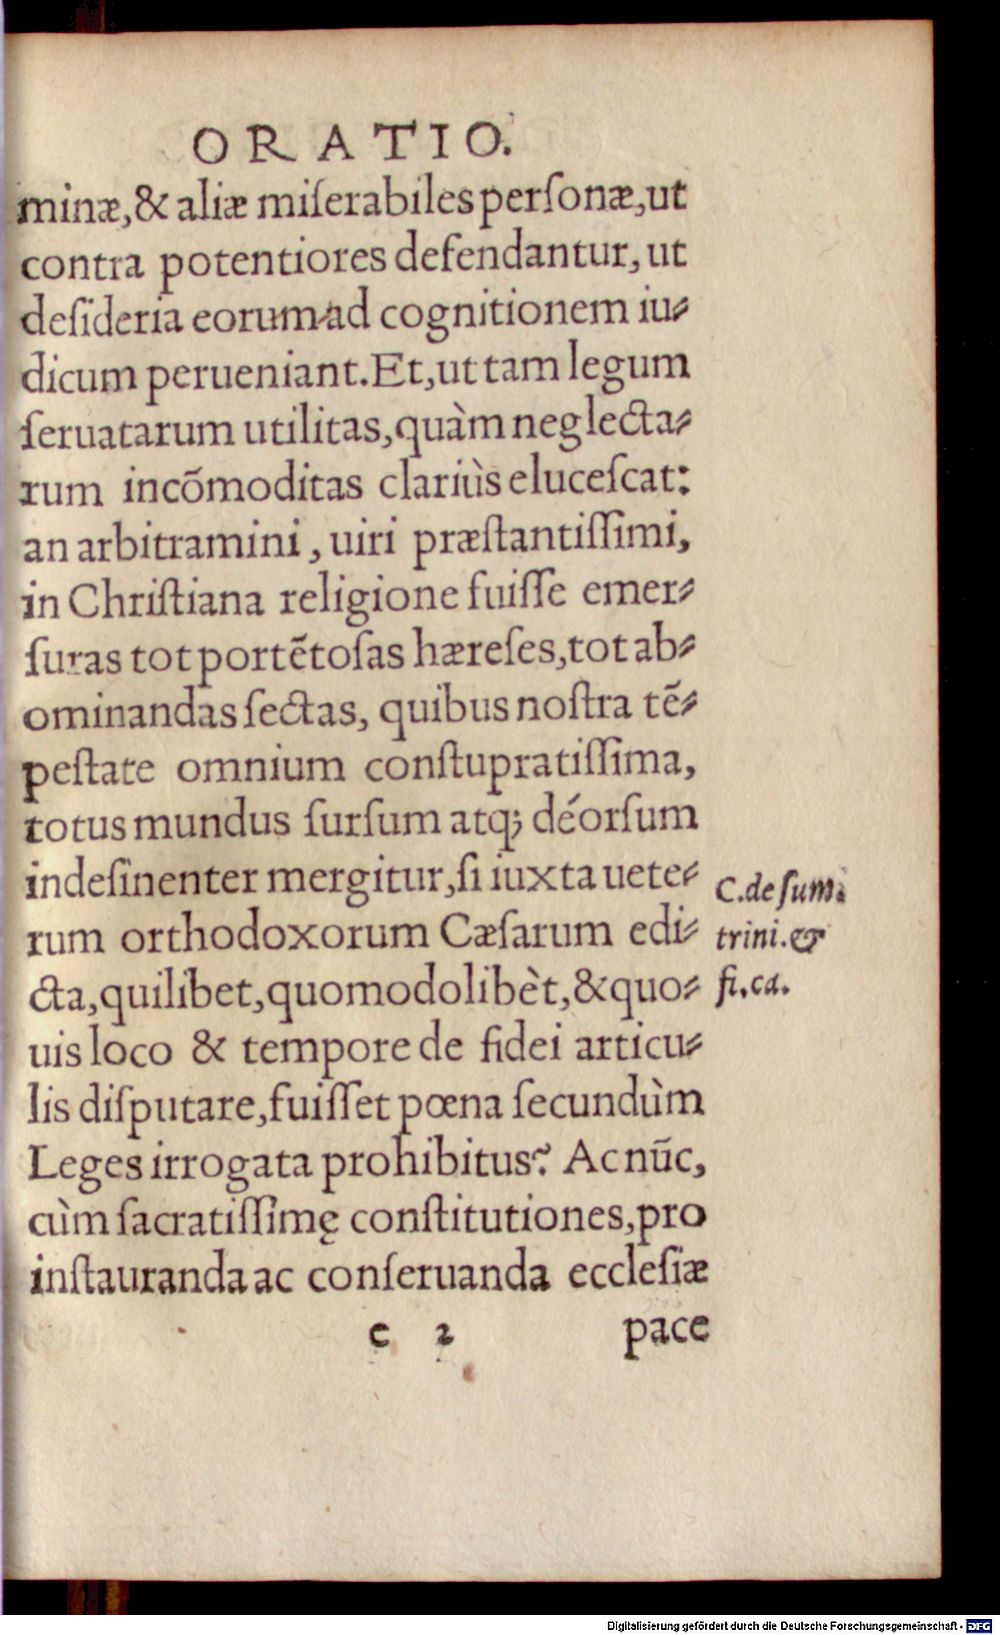 ORATIO.
minæ,& aliæ miſerabiles perſonæ,ut
contra potentiores defendantur, ut
deſideria eorum ad cognitionem iu⸗
dicum perueniant. Et, ut tam legum
ſeruatarum utilitas, quàm neglecta⸗
rum incõmoditas clariùs eluceſcat:
an arbitramini, uiri præſtantiſſimi,
in Chriſtiana religione fuiſſe emer⸗
ſuras tot portẽtoſas hæreſes, tot ab⸗
ominandas ſectas, quibus noſtra tẽ⸗
peſtate omnium conſtupratiſſima,
totus mundus ſurſum atq; déorſum
indeſinenter mergitur, ſi iuxta uete⸗
rum orthodoxorum Cæſarum edi⸗
cta, quilibet, quomodolibèt, & quo⸗
uis loco & tempore de fidei articu⸗
lis diſputare, fuiſſet pœna ſecundùm
Leges irrogata prohibitus? Ac nũc,
cùm ſacratiſſimę conſtitutiones, pro
inſtauranda ac conſeruanda eccleſiæ
c 2 pace
C. de ſum.
trini. &
fi. ca.
Digitalisierung gefördert durch die Deutsche Forschungsgemeinschaft - DFG